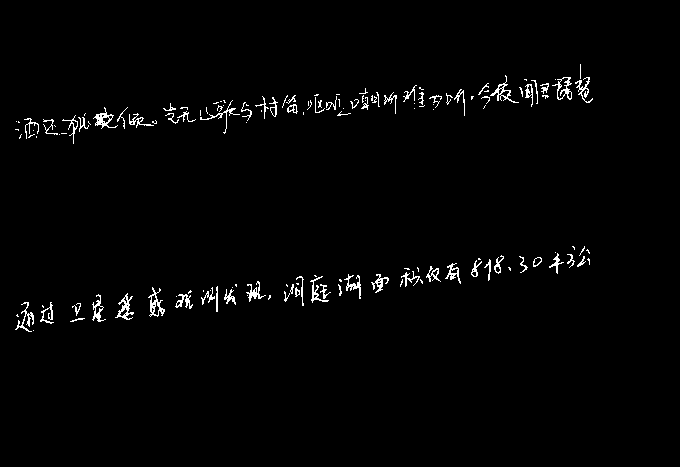 酒还独倾。岂无山歌与村笛,呕哑嘲哳难为听。今夜闻君琵琶
通过卫星遥感观测发现,洞庭湖面积仅有818.30平方公